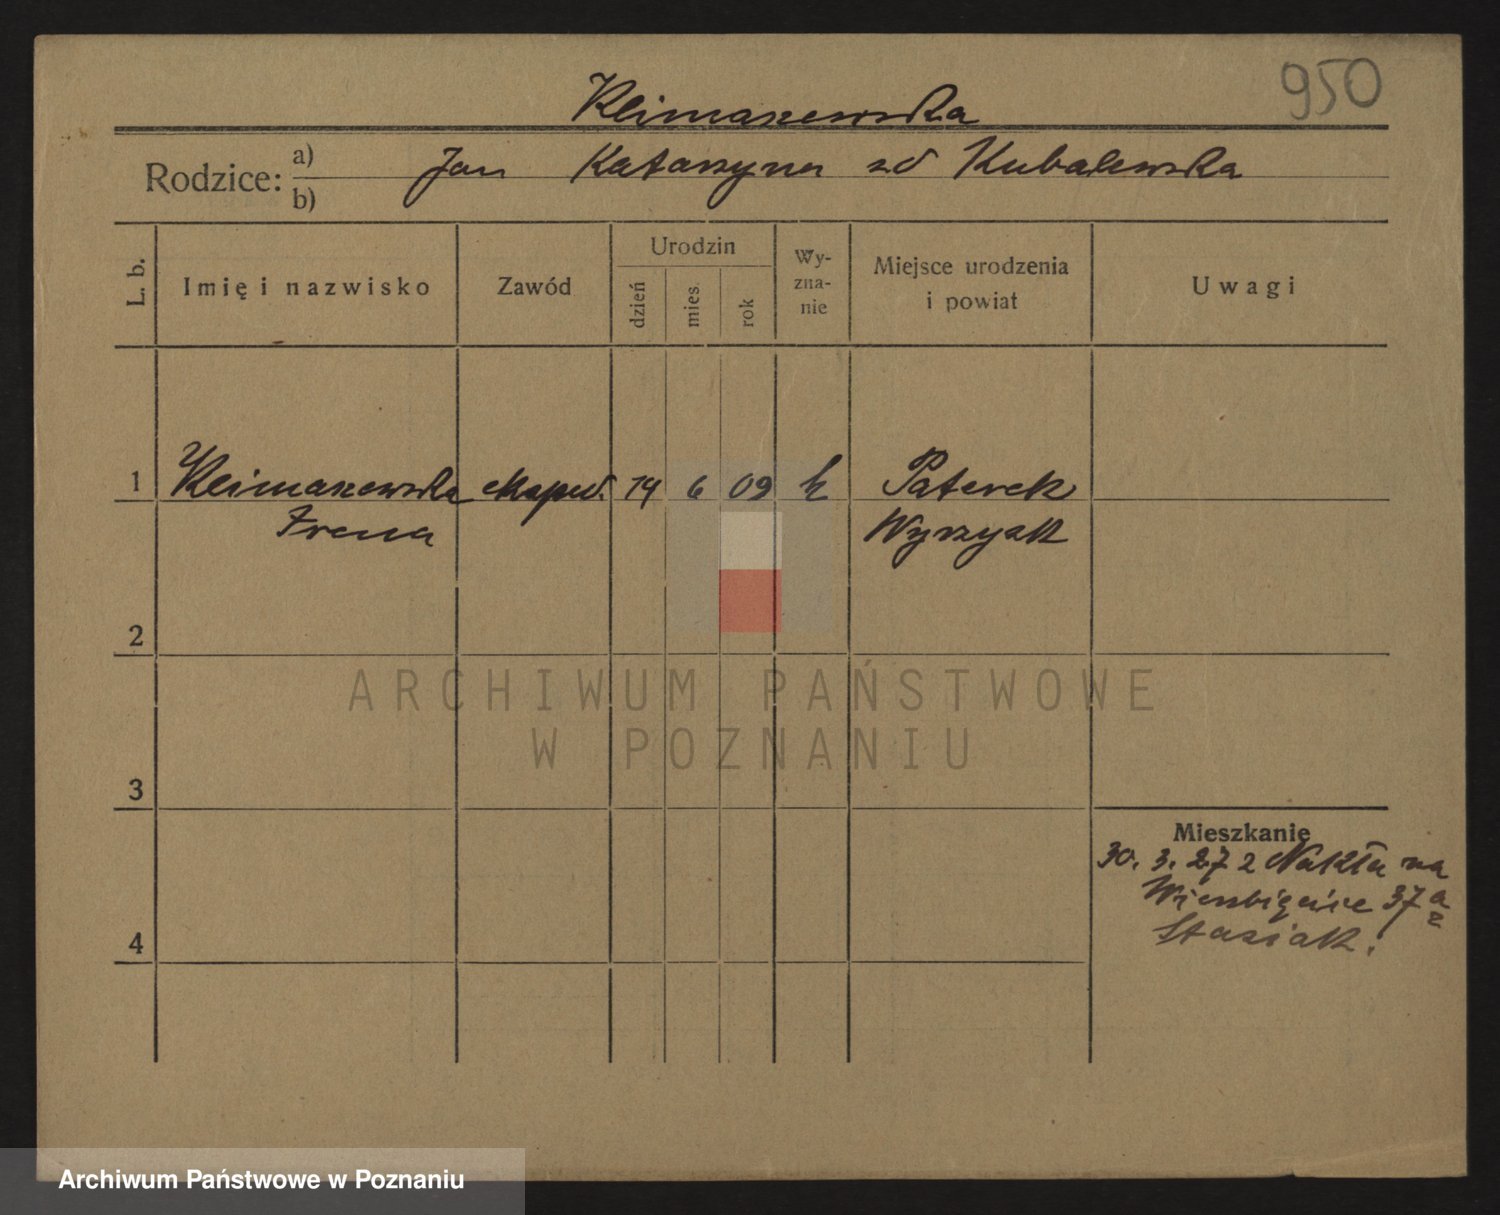 950
Klimaszewska
Rodzice: a) b) Jan Katarzyna zd Kubalewska
L. b. Imię i nazwisko Zawód Urodzin dzień mies. rok Wy-zna-nie Miejsce urodzenia i powiat Uwagi
1 Klimaszewska eksped. 14 6 09 k Paterek
Irena Wyrzysk
2
ARCHIWUM PAŃSTWOWE
W POZNANIU
3
Mieszkanie
30. 3. 27 z Nakła na
Wierzbięcice 37a
4 Stasiak.
Archiwum Państwowe w Poznaniu